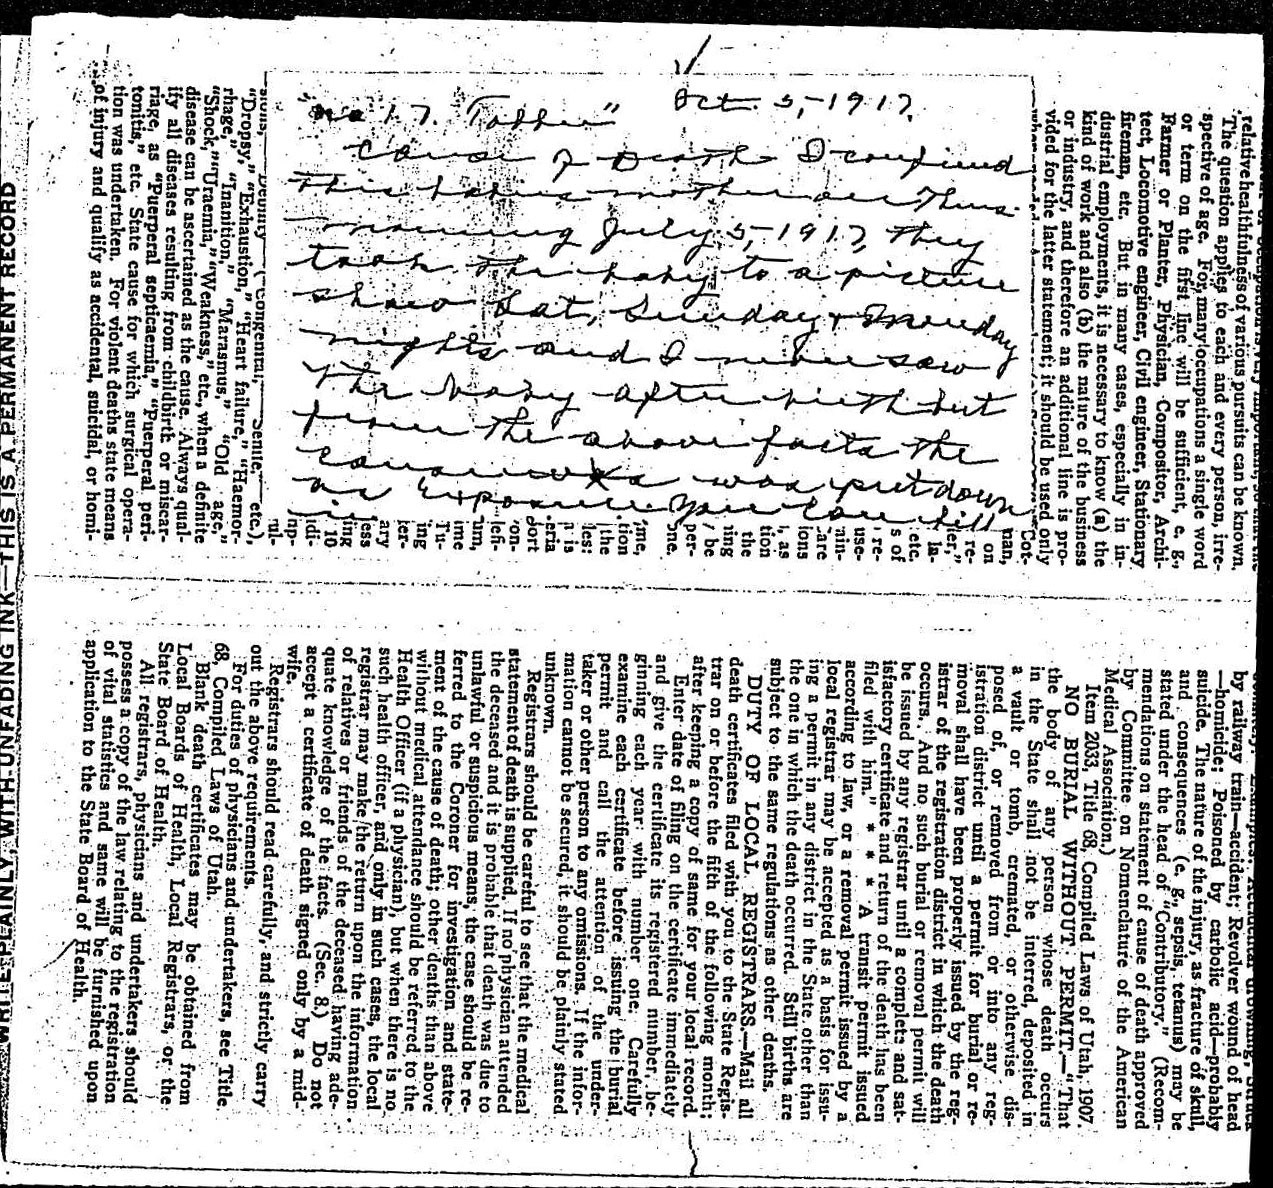 Oct. 5, 1917.
"No 17.
Cause of Death I confined
this babies mother on Thurs.
morning July 5, 1917, They
took the baby to a picture
show Sat, Sunday + Monday
nights and I never saw
the baby after birth but
from the above facts the
cause was put down
as Exposure You can still
relative healthfulness of various pursuits can be known.
The question applies to each and every person, irre-
spective of age. For many occupations a single word
or term on the first line will be sufficient, e. g.,
Farmer or Planter, Physician, Compositor, Archi-
tect, Locomotive engineer, Civil engineer, Stationary
fireman, etc. But in many cases, especially in in-
dustrial employments, it is necessary to know (a) the
kind of work and also (b) the nature of the business
or industry, and therefore an additional line is pro-
vided for the latter statement; it should be used only
"Dropsy," "Exhaustion," "Heart failure," "Haemor-
rhage," "Inanition," "Marasmus," "Old age,"
"Shock," "Uraemia," "Weakness," etc., when a definite
disease can be ascertained as the cause. Always qual-
ify all diseases resulting from childbirth or miscar-
riage, as "Puerperal septicaemia," "Puerperal peri-
tonitis," etc. State cause for which surgical opera-
tion was undertaken. For violent deaths state means
of injury and qualify as accidental, suicidal, or homi-
by railway train—accident; Revolver wound of head
—homicide; Poisoned by carbolic acid—probably
suicide. The nature of the injury, as fracture of skull,
and consequences (e. g., sepsis, tetanus) may be
stated under the head of "Contributory." (Recom-
mendations on statement of cause of death approved
by Committee on Nomenclature of the American
Medical Association.)
Item 2033, Title 68, Compiled Laws of Utah, 1907.
NO BURIAL WITHOUT PERMIT.—"That
the body of any person whose death occurs
in the State shall not be interred, deposited in
a vault or tomb, cremated, or otherwise dis-
posed of, or removed from or into any reg-
istration district until a permit for burial or re-
moval shall have been properly issued by the reg-
istrar of the registration district in which the death
occurs. And no such burial or removal permit will
be issued by any registrar until a complete and sat-
isfactory certificate and return of the death has been
filed with him." * * * A transit permit issued
according to law, or a removal permit issued by a
local registrar may be accepted as a basis for issu-
ing a permit in any district in the State other than
the one in which the death occurred. Still births are
subject to the same regulations as other deaths.
DUTY OF LOCAL REGISTRARS.—Mail all
death certificates filed with you to the State Regis-
trar on or before the fifth of the following month;
after keeping a copy of same for your local record.
Enter date of filing on the certificate immediately
and give the certificate its registered number, be-
ginning each year with number one. Carefully
examine each certificate before issuing the burial
permit and call the attention of the under-
taker or other person to any omissions. If the infor-
mation cannot be secured, it should be plainly stated
unknown.
Registrars should be careful to see that the medical
statement of death is supplied. If no physician attended
the deceased and it is probable that death was due to
unlawful or suspicious means, the case should be re-
ferred to the Coroner for investigation and state-
ment of the cause of death; other deaths than above
without medical attendance should be referred to the
Health Officer (if a physician), but when there is no
such health officer, and only in such cases, the local
registrar may make the return upon the information
of relatives or friends of the deceased having ade-
quate knowledge of the facts. (Sec. 8.) Do not
accept a certificate of death signed only by a mid-
wife.
Registrars should read carefully, and strictly carry
out the above requirements.
For duties of physicians and undertakers, see Title
68, Compiled Laws of Utah.
Blank death certificates may be obtained from
Local Boards of Health, Local Registrars, or the
State Board of Health.
All registrars, physicians and undertakers should
possess a copy of the law relating to the registration
of vital statistics and same will be furnished upon
application to the State Board of Health.
WRITE PLAINLY WITH UNFADING INK—THIS IS A PERMANENT RECORD